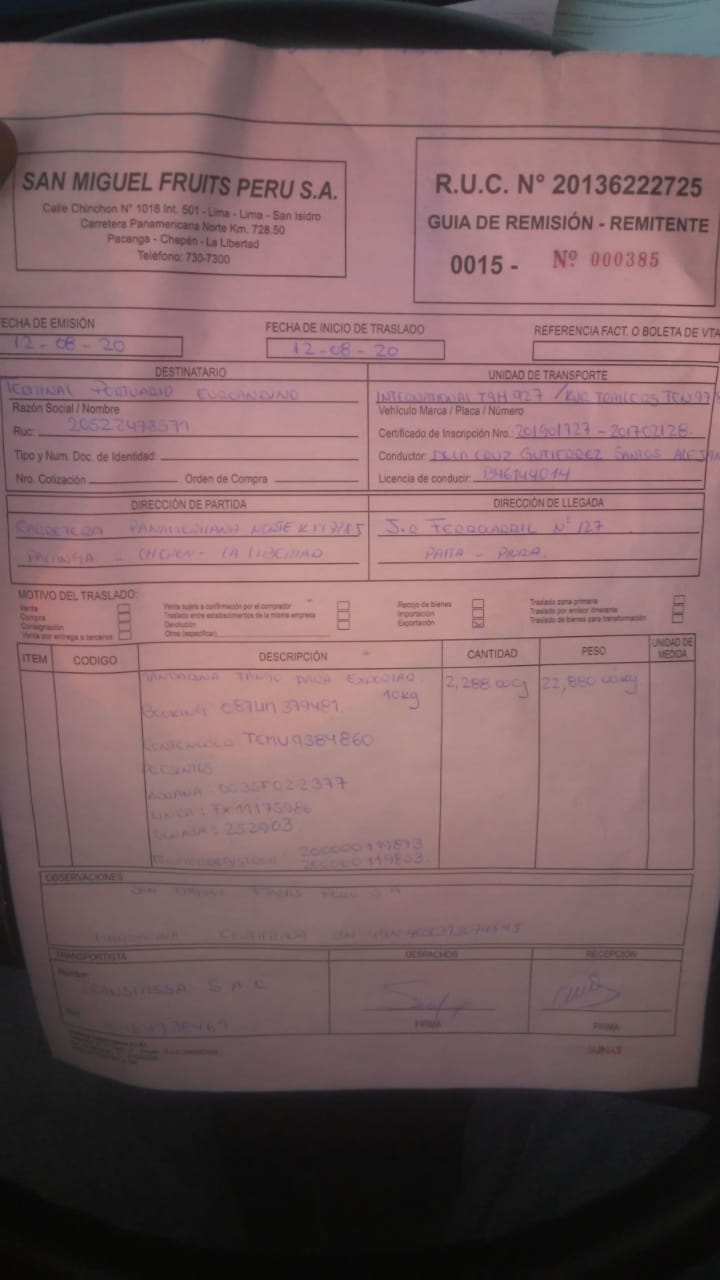 SAN MIGUEL FRUITS PERU S.A.
Calle Chinchon N° 1018 Int. 501 - Lima - Lima - San Isidro
Carretera Panamericana Norte Km. 728.50
Pacanga - Chepén - La Libertad
Teléfono: 730-7300
R.U.C. N° 20136222725
GUIA DE REMISIÓN - REMITENTE
0015 - Nº 000385
FECHA DE EMISIÓN
12-08-20
FECHA DE INICIO DE TRASLADO
12-08-20
REFERENCIA FACT. O BOLETA DE VTA
DESTINATARIO
TERMINAL PORTUARIO EUROANDINO
Razón Social / Nombre
Ruc: 20522473571
Tipo y Num. Doc. de Identidad:
Nro. Cotización Orden de Compra
UNIDAD DE TRANSPORTE
INTERNATIONAL T9M 927 / KUR TRAILERS TCN 97
Vehículo Marca / Placa / Número
Certificado de Inscripción Nro.: 201901727 - 201702128
Conductor: DE LA CRUZ GUTIERREZ SANTOS
Licencia de conducir: B46144014
DIRECCIÓN DE PARTIDA
CARRETERA PANAMERICANA NORTE
PACANGA - CHEPEN - LA LIBERTAD
DIRECCIÓN DE LLEGADA
J.R FERROCARRIL N° 127
PAITA - PIURA
MOTIVO DEL TRASLADO:
Venta
Compra
Consignación
Venta por entrega a terceros
Venta sujeta a confirmación por el comprador
Traslado entre establecimientos de la misma empresa
Devolución
Otros (especificar)
Recojo de bienes
Importación
Exportación
Traslado zona primaria
Traslado por emisor itinerante
Traslado de bienes para transformación
ITEM CODIGO DESCRIPCIÓN CANTIDAD PESO UNIDAD DE MEDIDA
MANDARINA TANGO PARA 2,288 22,880.00kg
10kg
BOOKING 087LIM379481
CONTENEDOR TCMU9384860
PRECINTOS
ADUANA: 
LINEA: FX11175986
SENASA: 252003
200000119813
OBSERVACIONES
SAN MIGUEL FRUITS PERU S.A
MANDARINA CERTIFICADA
TRANSPORTISTA
Nombre
S A C
Ruc
DESPACHOS
FIRMA
RECEPCIÓN
FIRMA
SUNAT